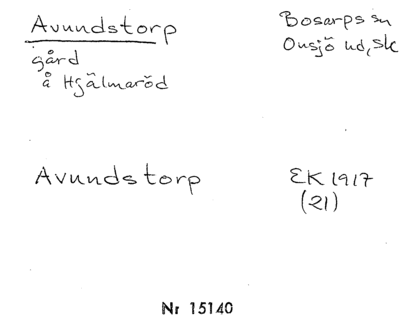 Avundstorp
Bosarps sn
gård
Onsjö hd, Sk
å Hjälmaröd
Avundstorp
EK 1917
(21)
Nr 15140